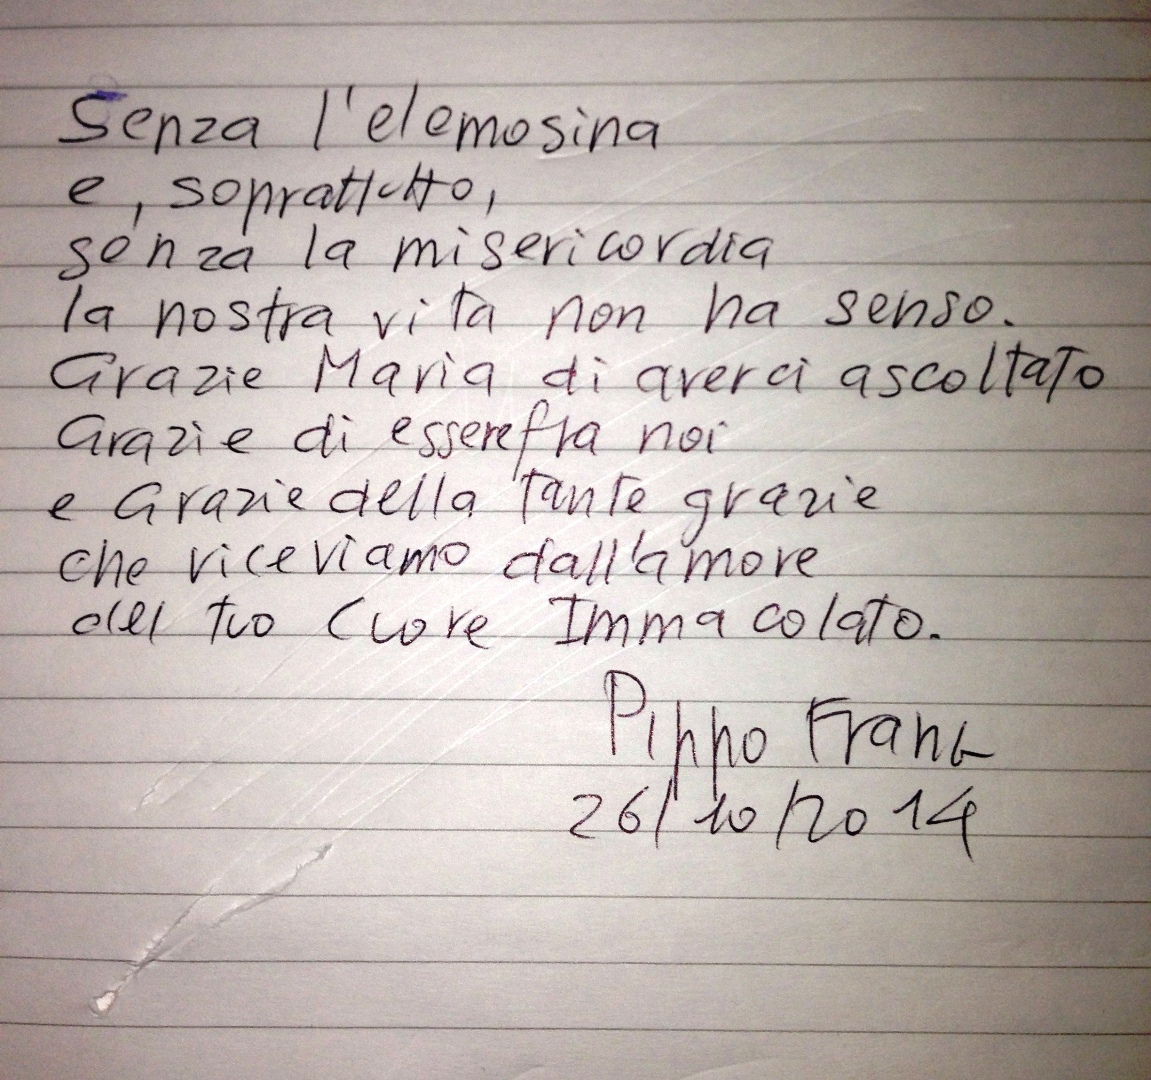 Senza l'elemosina
e, soprattutto,
senza la misericordia
la nostra vita non ha senso.
Grazie Maria di averci ascoltato
Grazie di essere fra noi
e Grazie della tante grazie
che riceviamo dall'amore
del tuo Cuore Immacolato.
Pippo Franco
26/10/2014